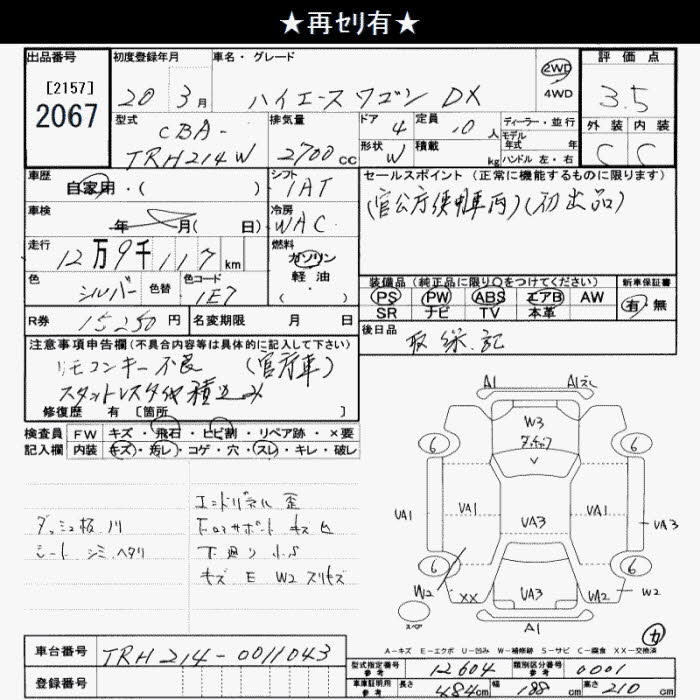 ★再セリ有★
出品番号 初度登録年月 車名・グレード 評価点
[2157]
2067
20 3月 ハイエースワゴン DX 2WD 4WD 3.5
型式 排気量 ドア 定員 ディーラー・並行 外装 内装
CBA-
TRH214W 2700cc 4 10人 モデル年式 年 C C
形状 W 積載 kg ハンドル 左・右
車歴 シフト セールスポイント (正常に機能するものに限ります)
自家用・( ) IAT
(官公庁使用車両)(初出品)
車検 冷房
年 月( 日) WAC
走行 燃料
12万9千117km ガソリン
軽油
・( )
色 色替 色コード
シルバー 1E7
装備品 (純正品に限り○をつけてください) 新車保証書
PS PW ABS エアB AW 有・無
SR ナビ TV 本革
R券 15250円 名変期限 月 日
後日品 取、録、記
注意事項申告欄(不具合内容等は具体的に記入して下さい)
リモコンキー不良 (官庁車)
スタットレスタイヤ積込み
修復歴 有 [箇所 ]
検査員 FW キズ・飛石・ヒビ割・リペア跡・×要
記入欄 内装 キズ・汚レ・コゲ・穴・スレ・キレ・破レ
エンドパネル 歪
ダッシュ板 川 Fロアサポート キズ ヒ
シート シミ ヘタリ 下廻り 小S
キズ E W2 スリキズ
A1 A1えし
W3
6 6
VA1 VA1 VA3 VA1 VA3
6 6
W2 XX VA3 VA2 W2
スペア
A1
A-キズ E-エクボ U-凹み W-補修跡 S-サビ C-腐食 XX-交換済
車台番号 TRH214-0011043
登録番号
型式指定番号 参考 12604 類別区分番号 参考 0001
車庫証明用 参考 長さ 484cm 幅 188cm 高さ 210cm